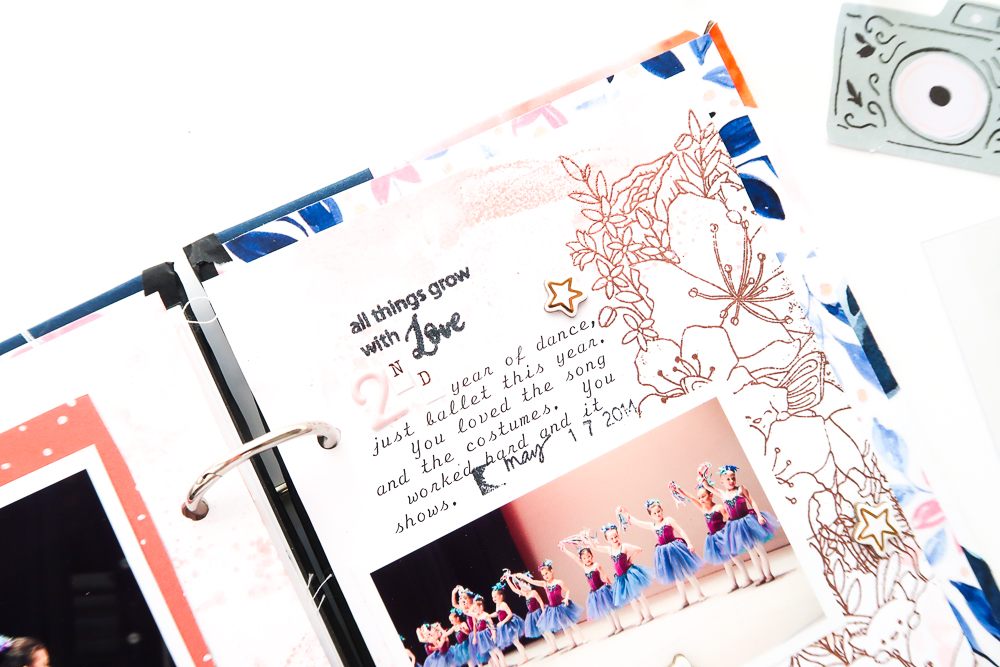 all things grow
with Love
2ND year of dance,
just ballet this year.
You loved the song
and the costumes. You
worked hard and it
shows. may 17 2014